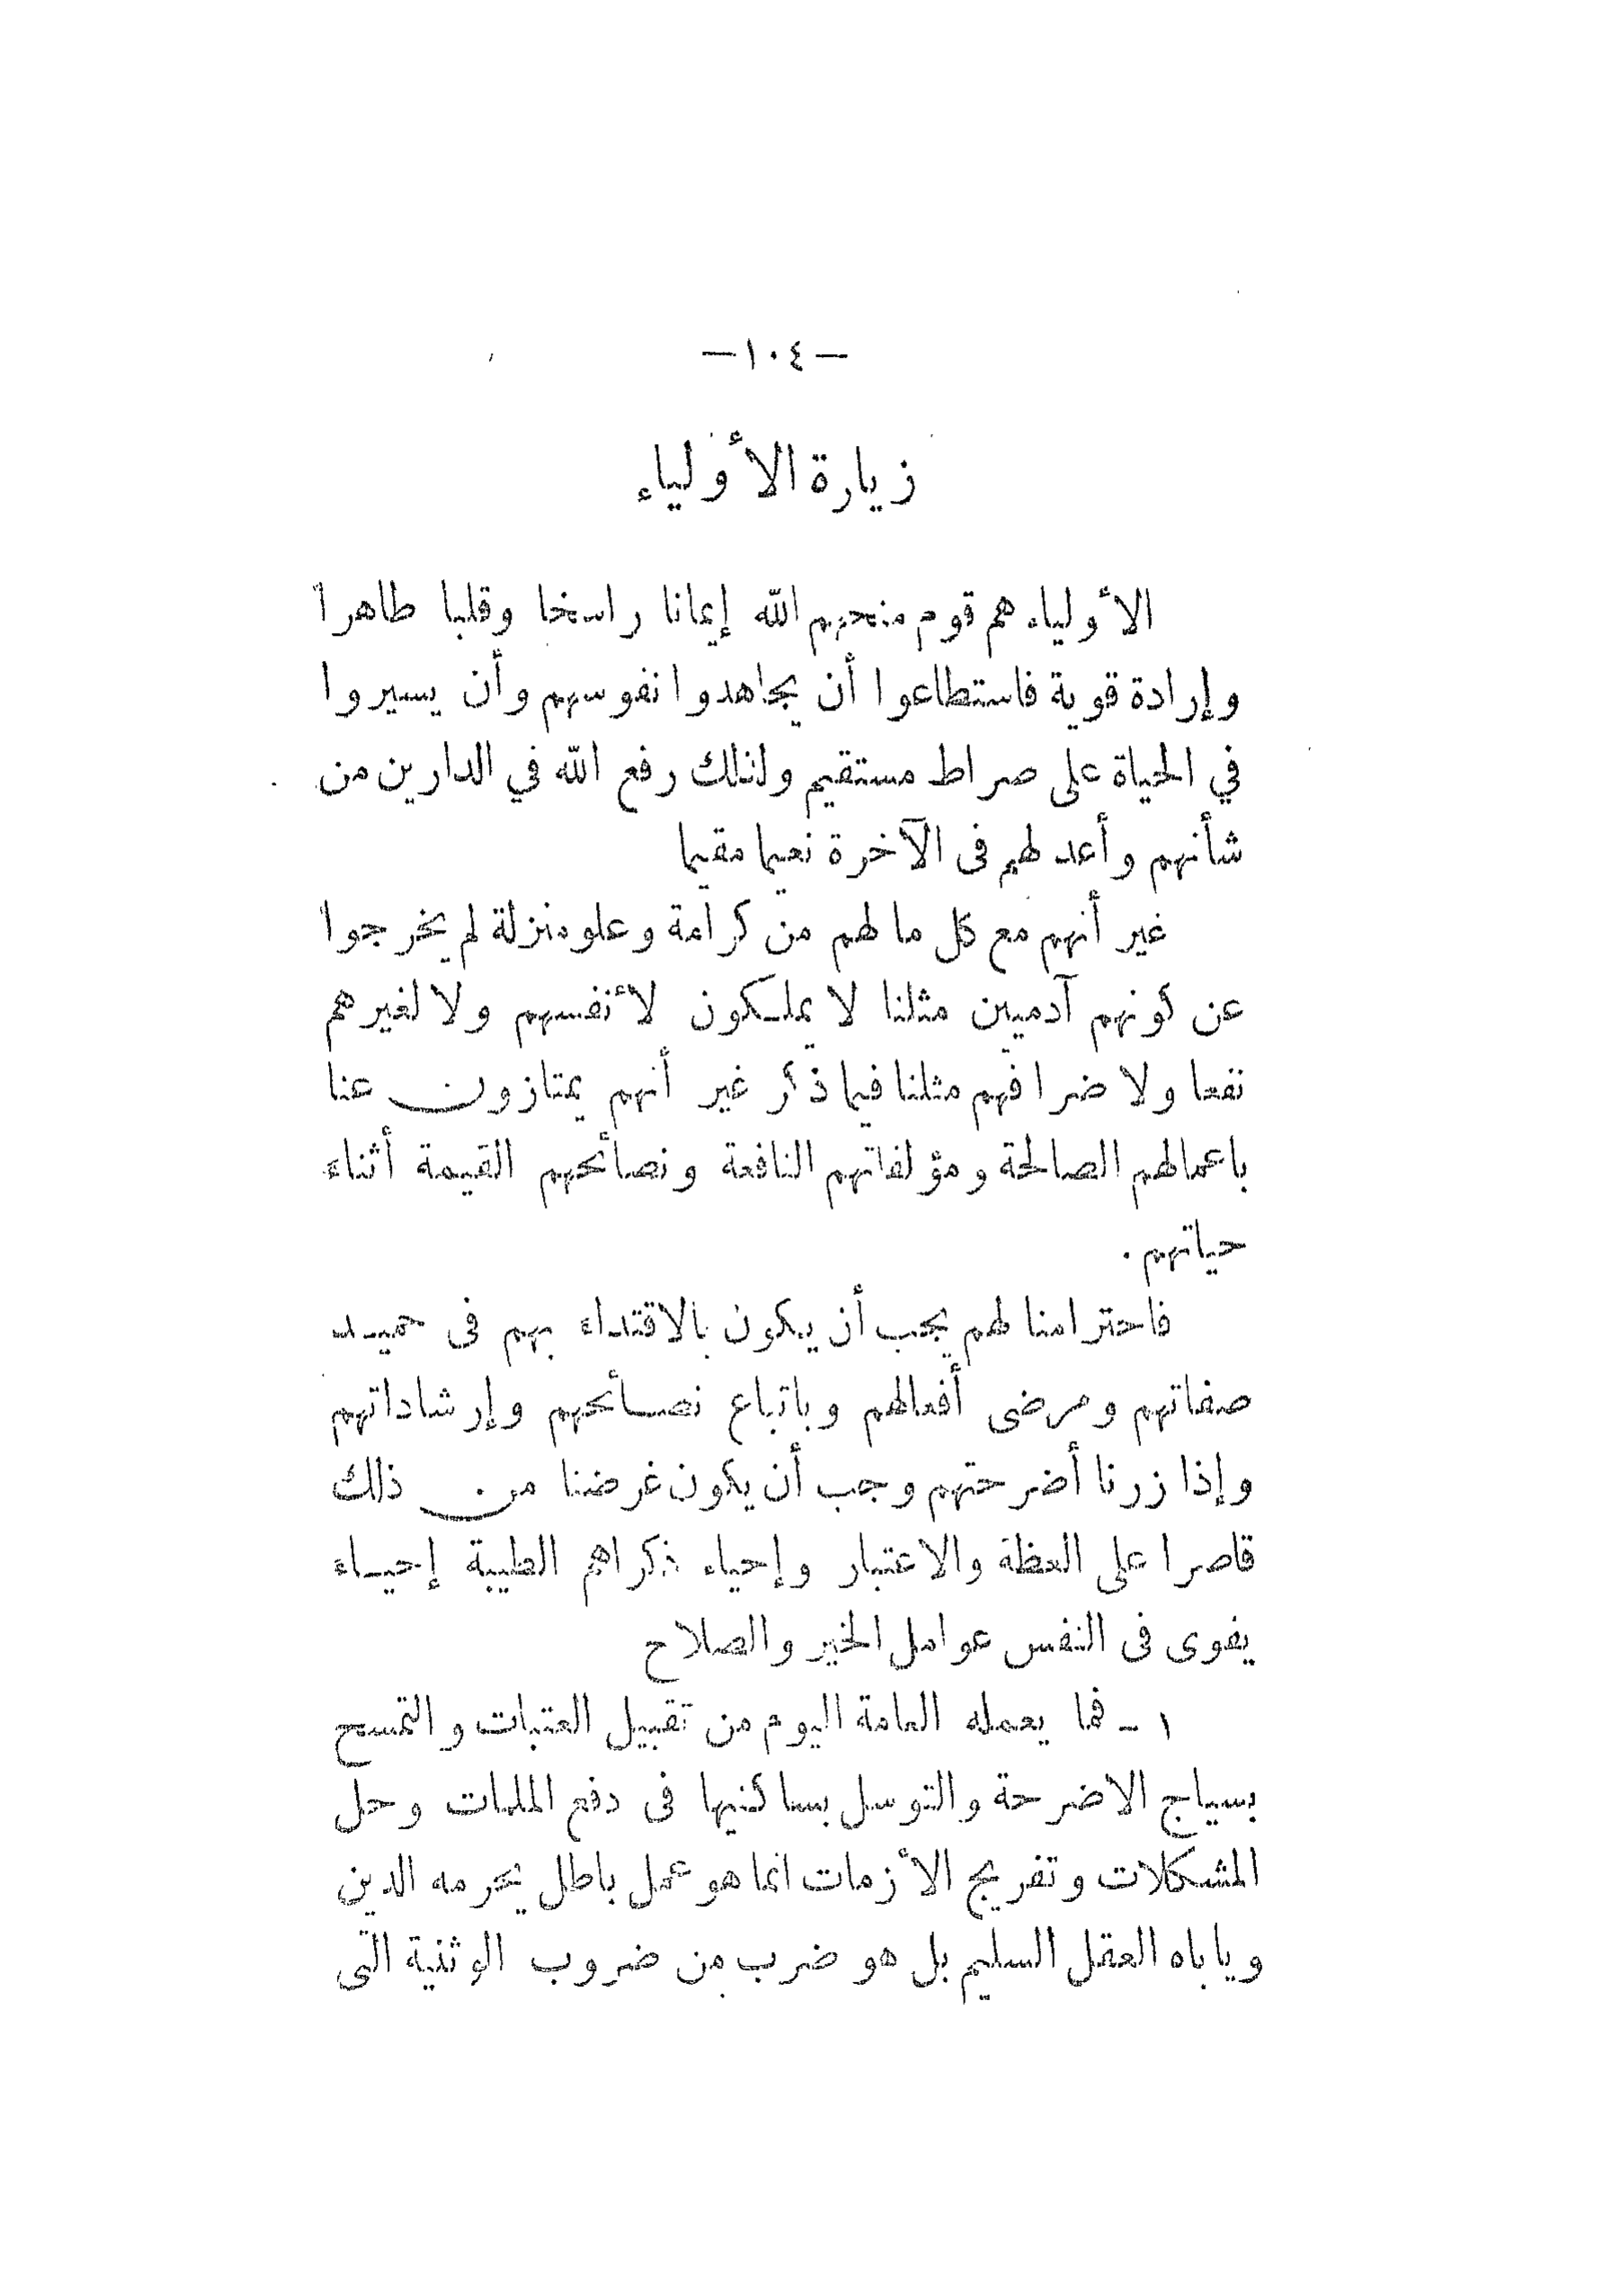 — ١٠٤ —
زيارة الأولياء
الأولياء هم قوم منحهم الله إيمانا راسخا وقلبا طاهرا
وإرادة قوية فاستطاعوا أن يجاهدوا نفوسهم وأن يسيروا
في الحياة على صراط مستقيم ولذلك رفع الله في الدارين من
شأنهم وأعد لهم فى الآخرة نعيما مقيما
غير أنهم مع كل ما لهم من كرامة وعلو منزلة لم يخرجوا
عن كونهم آدميين مثلنا لا يملكون لأنفسهم ولا لغيرهم
نفعا ولا ضرا فهم مثلنا فيما ذكر غير أنهم يمتازون عنا
باعمالهم الصالحة ومؤلفاتهم النافعة ونصائحهم القيمة أثناء
حياتهم .
فاحترامنا لهم يجب أن يكون بالاقتداء بهم فى حميد
صفاتهم ومرضى أفعالهم وباتباع نصائحهم وإرشاداتهم
وإذا زرنا أضرحتهم وجب أن يكون غرضنا من ذلك
قاصرا على العظة والاعتبار وإحياء ذكراهم الطيبة إحياء
يقوى فى النفس عوامل الخير والصلاح
١ - فما يعمله العامة اليوم من تقبيل العتبات والتمسح
بسياج الاضرحة والتوسل بساكنيها فى دفع الملمات وحل
المشكلات وتفريج الأزمات انما هو عمل باطل يحرمه الدين
وياباه العقل السليم بل هو ضرب من ضروب الوثنية التى